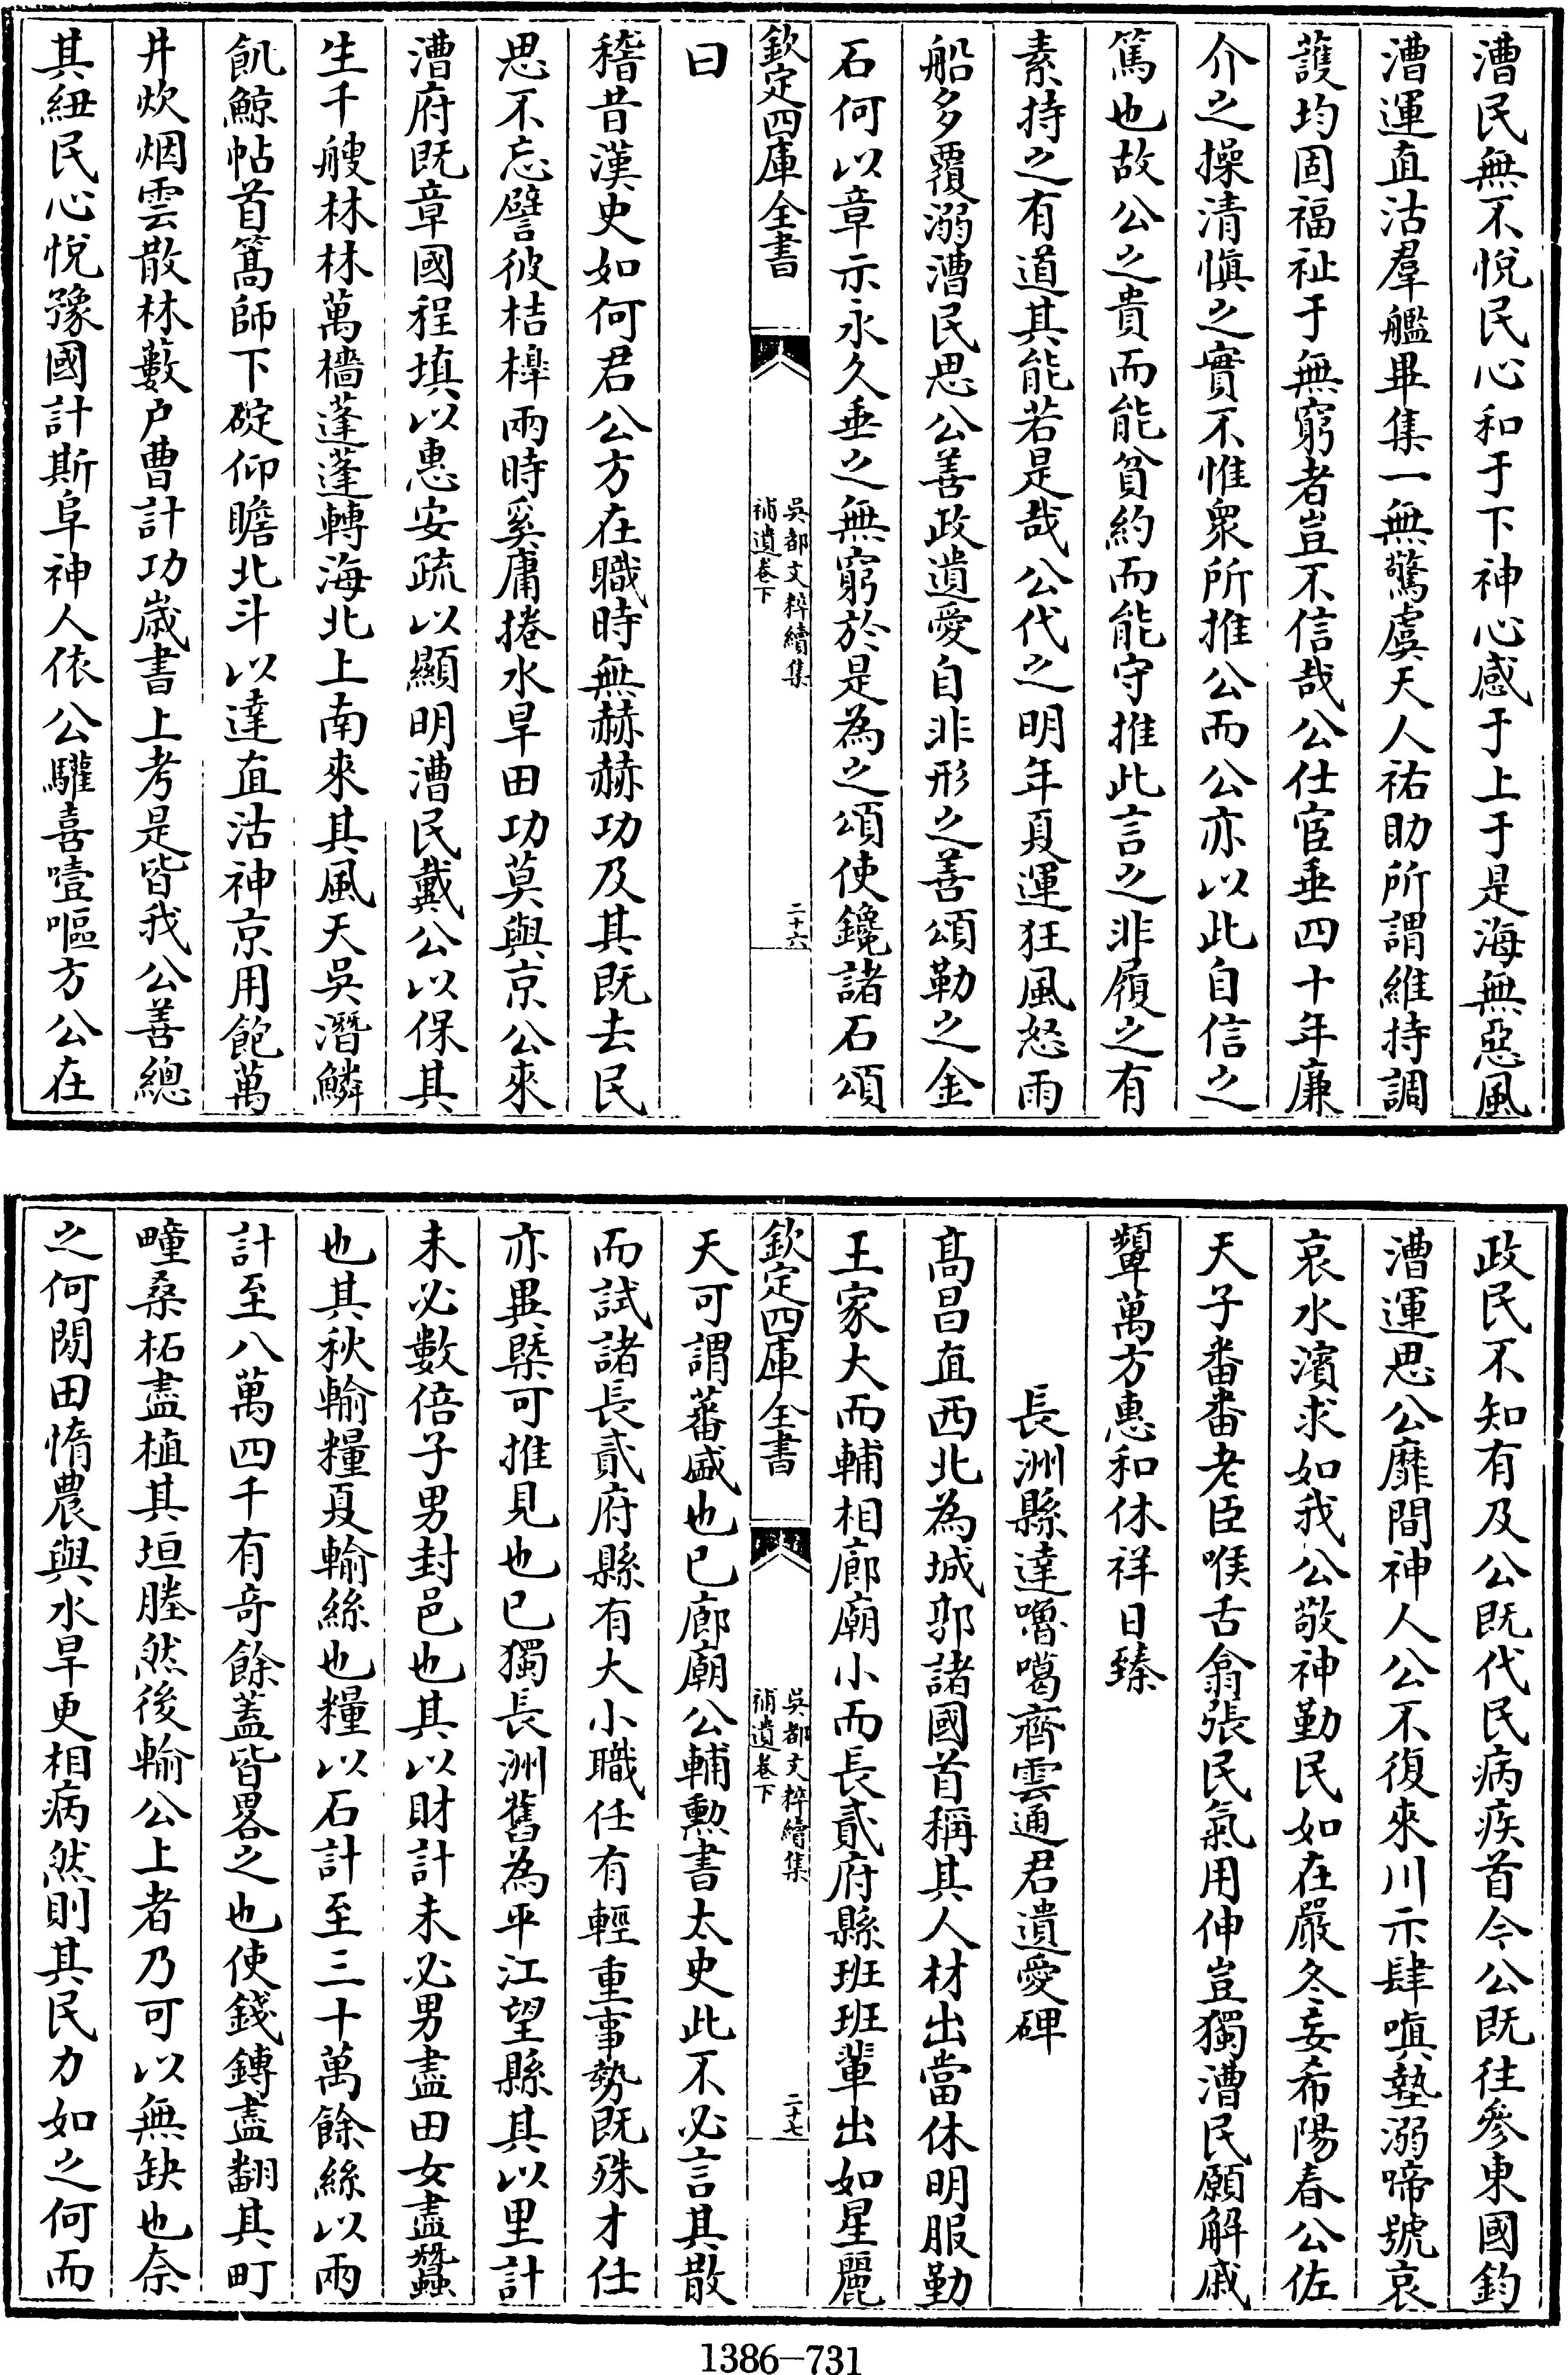 漕民無不悅民心和于下神心感于上于是海無惡風
漕運直沽羣艦畢集一無驚虞天人祐助所謂維持調
護均固福祉于無窮者豈不信哉公仕宦垂四十年廉
介之操清慎之實不惟衆所推公而公亦以此自信之
篤也故公之貴而能貧約而能守推此言之非履之有
素持之有道其能若是哉公代之明年夏運狂風怒雨
船多覆溺漕民思公善政遺愛自非形之善頌勒之金
石何以章示永久垂之無窮於是為之頌使鑱諸石頌
曰
欽定四庫全書
吳都文粹續集
補遺卷下
二十六
稽昔漢史如何君公方在職時無赫赫功及其既去民
思不忘譬彼桔槹兩時奚庸捲水旱田功莫與京公來
漕府既章國程填以惠安疏以顯明漕民戴公以保其
生千艘林林萬檣蓬蓬轉海北上南來其風天吳潛鱗
飢鯨帖首篙師下碇仰瞻北斗以達直沽神京用飽萬
井炊烟雲散林藪户曹計功歲書上考是皆我公善總
其紐民心悅豫國計斯阜神人依公驩喜噎嘔方公在
政民不知有及公既代民病疾首今公既往參東國鈞
漕運思公靡間神人公不復來川示肆嗔墊溺啼號哀
哀水濱求如我公敬神勤民如在嚴冬妄希陽春公佐
天子番番老臣喉舌翕張民氣用伸豈獨漕民願解戚
顰萬方惠和休祥日臻
長洲縣達嚕噶齊雲通君遺愛碑
高昌直西北為城郭諸國首稱其人材出當休明服勤
王家大而輔相廊廟小而長貳府縣班班輩出如星麗
欽定四庫全書
吳都文粹續集
補遺卷下
二十七
天可謂蕃盛也已廊廟公輔勲書太史此不必言其散
而試諸長貳府縣有大小職任有輕重事勢既殊才任
亦異槩可推見也已獨長洲舊為平江望縣其以里計
未必數倍子男封邑也其以財計未必男盡田女盡蠶
也其秋輸糧夏輸絲也糧以石計至三十萬餘絲以兩
計至八萬四千有奇餘蓋皆畧之也使錢鏄盡翻其町
畽桑柘盡植其垣塍然後輸公上者乃可以無缺也奈
之何閒田惰農與水旱更相病然則其民力如之何而
1386-731